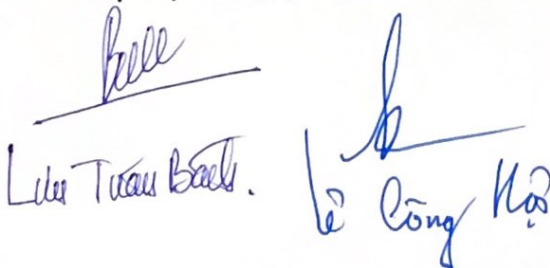 Lưu Tuấn Bách.
Lê Công Hội